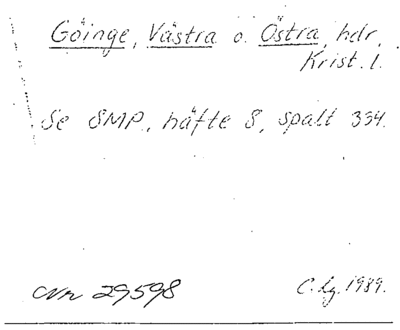 Göinge, Västra o. Östra, hdr.
Krist. l.
Se SMP, häfte 8, spalt 334.
Nr 29598
1989.